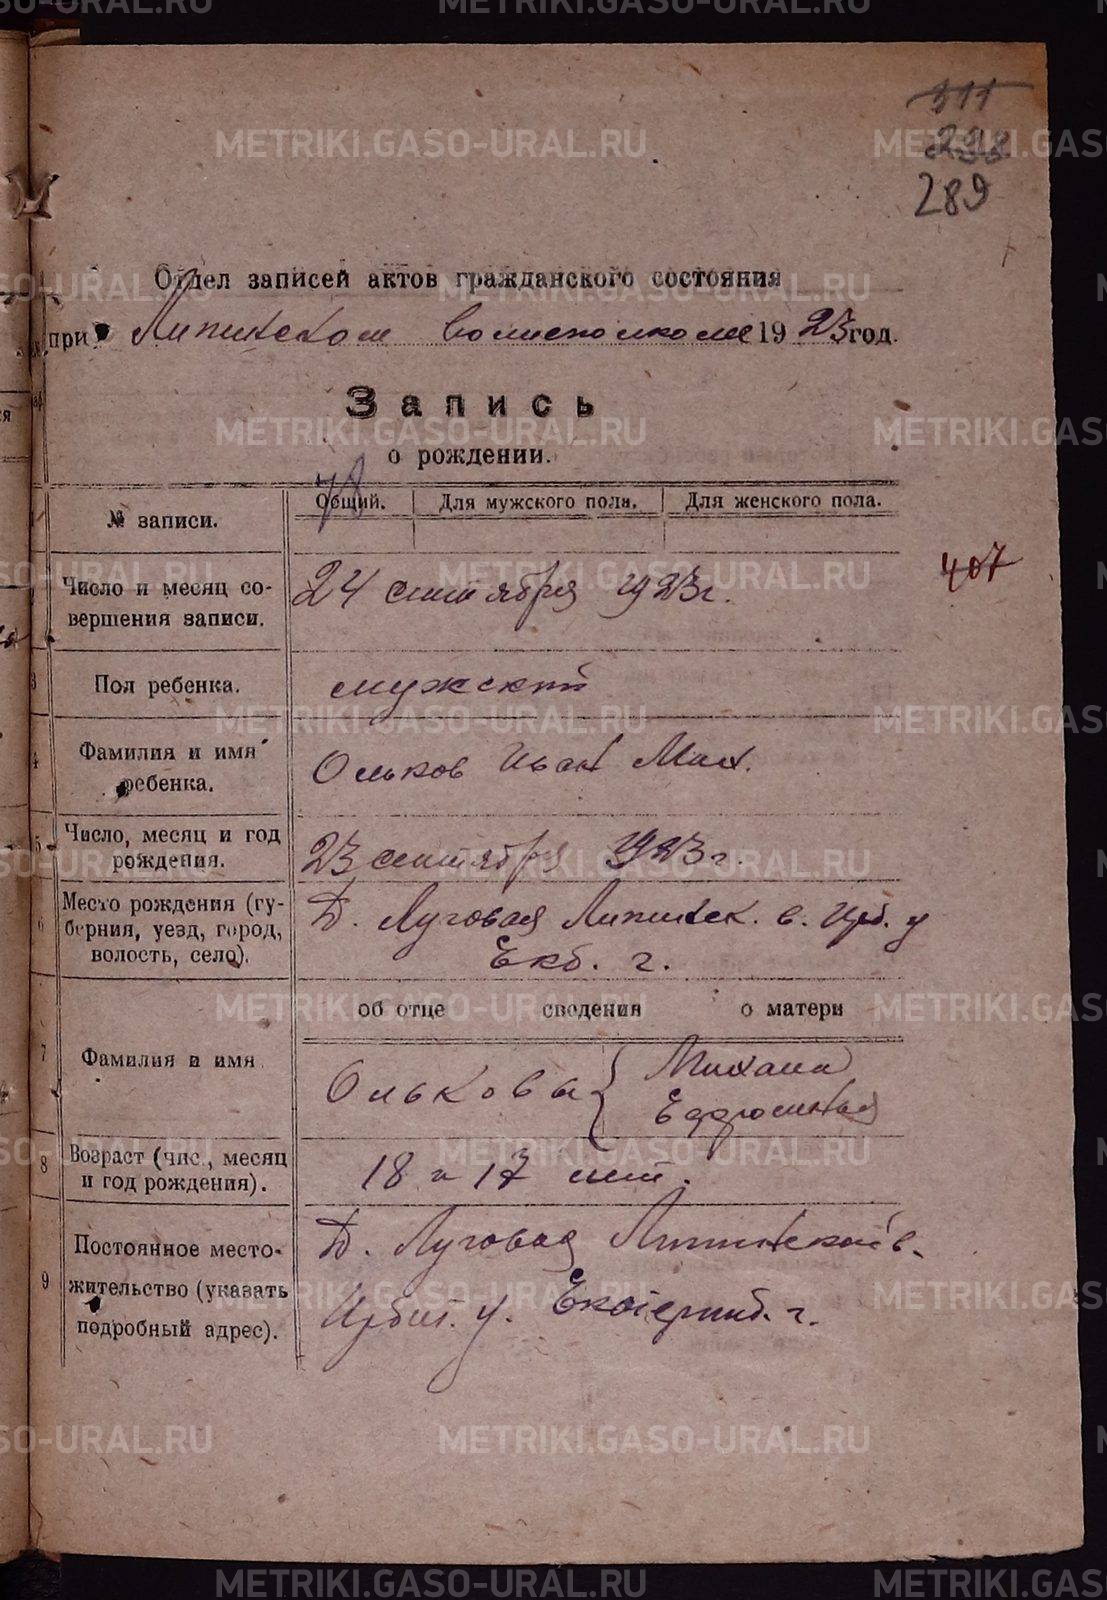 311
298
289
Отдел записей актов гражданского состояния
при Липинском волисполкоме 1923 год.
Запись
о рождении.
№ записи. Общий. Для мужского пола. Для женского пола.
78
407
Число и месяц со-
вершения записи.
24 сентября 1923 г.
3 Пол ребенка. мужской
4 Фамилия и имя
ребенка.
Ольков Иван Мих.
5 Число, месяц и год
рождения.
23 сентября 1923 г.
6 Место рождения (гу-
берния, уезд, город,
волость, село).
Д. Луговая Липинск. в. Ирб. у
Екб. г.
об отце сведения о матери
7 Фамилия и имя
Ольковы { Михаил
Ефросинья
8 Возраст (чис., месяц
и год рождения).
18 и 17 лет.
9 Постоянное место-
жительство (указать
подробный адрес).
Д. Луговая Липинской в.
Ирбит. у. Екатеринб. г.
METRIKI.GASO-URAL.RU